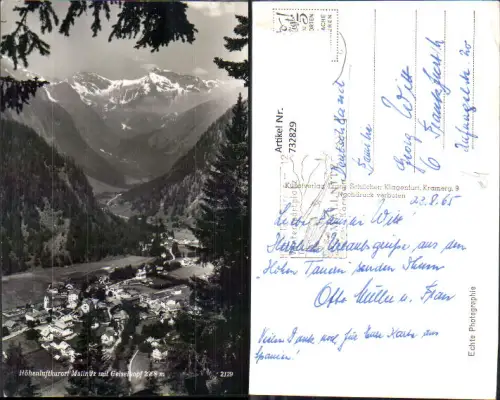 Höhenluftkurort Mallnitz mit Geiselkopf
2129
Artikel Nr.
732829
Deutschland
Familie
Georg Witt
6 Frankfurt
20
Kunstverlag Klagenfurt, Kramerg. 9
Nachdruck verboten
Echte Photographie
22.8.65
Liebe Familie Witt!
Herzliche Urlaubsgrüsse aus den
"Hohen Tauern" senden Ihnen
Otto Müller u. Frau
Vielen Dank noch für Eure Karte aus
Spanien!